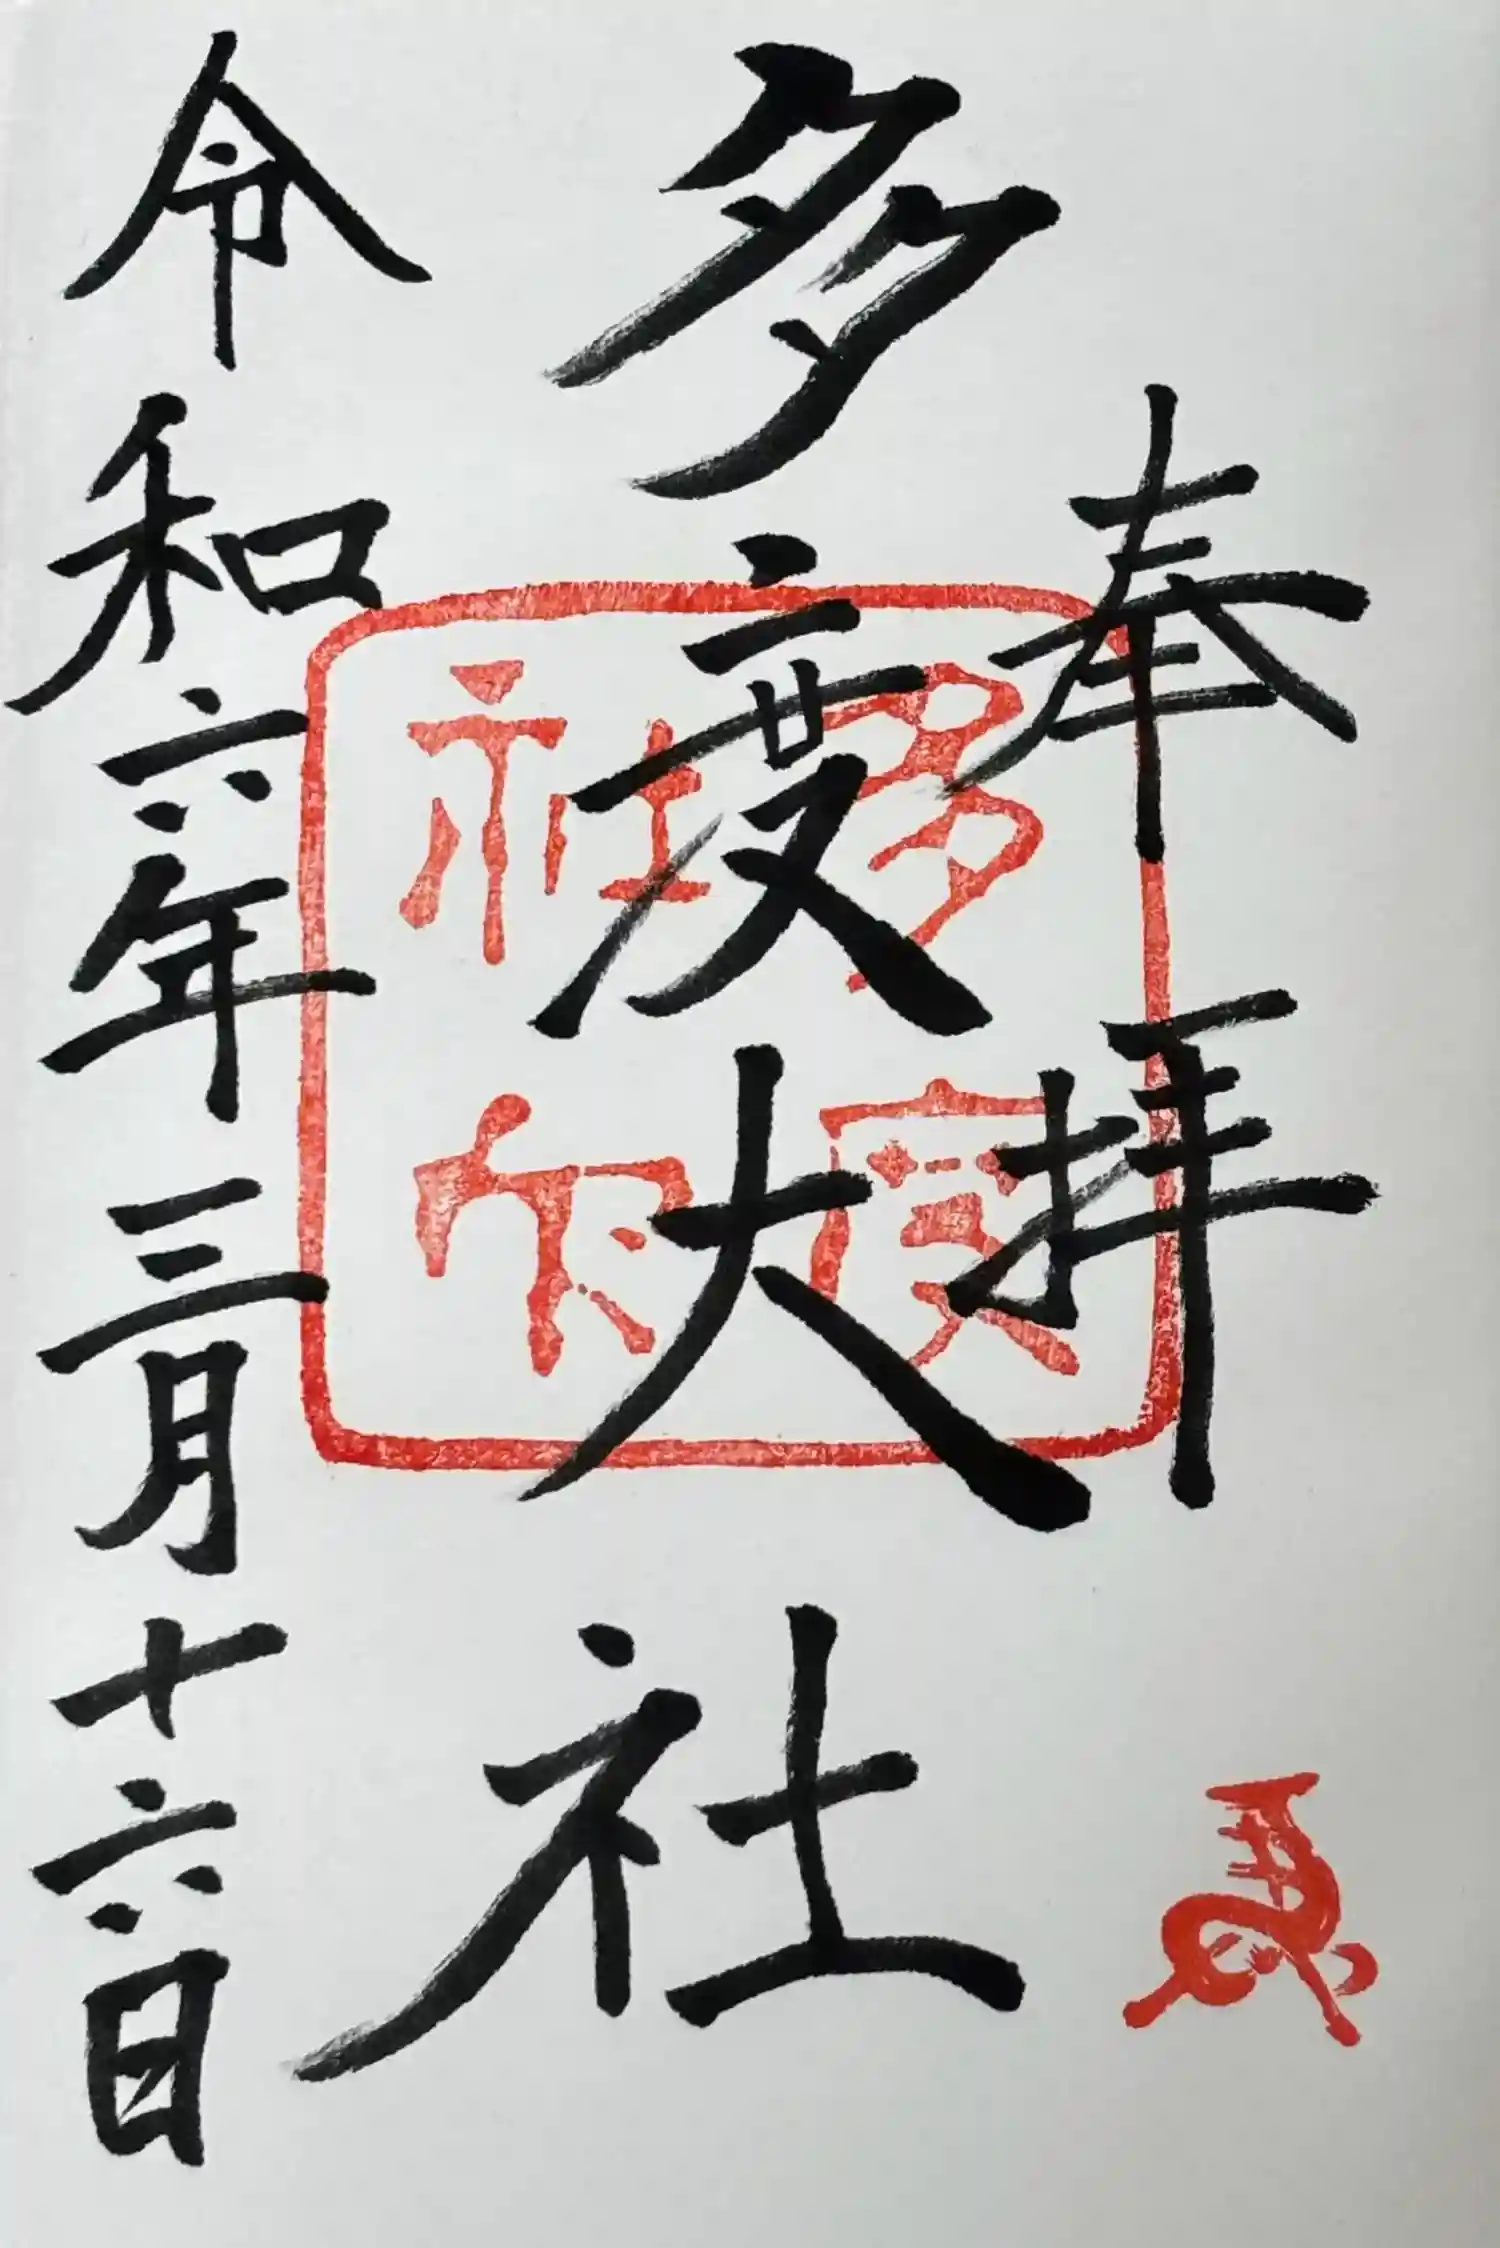 奉拝
多度大社
多度
大社
令和六年三月十六日